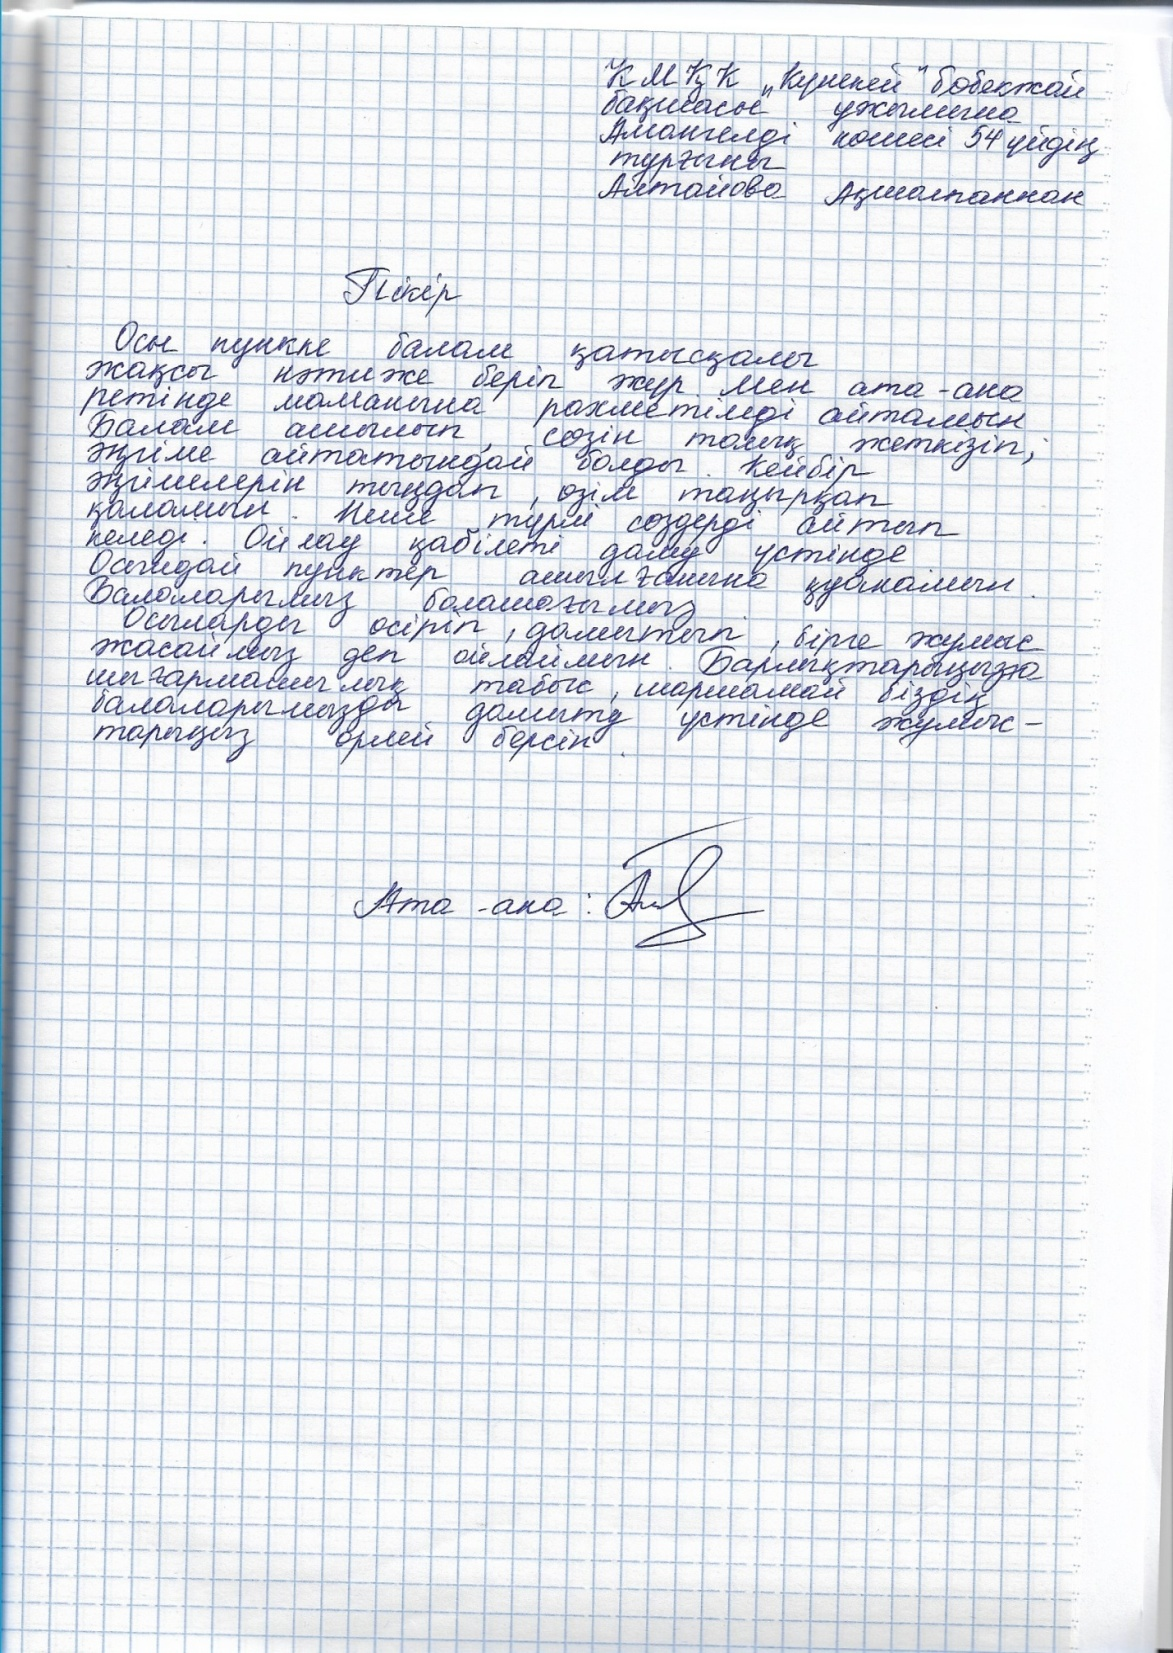 КМҚК „Күншуақ" бөбекжай
бақшасы ұжымына
Амангелді көшесі 54 үйдің
тұрғыны
Алтайова Ақшолпаннан
Пікір
Осы пункке балам қатысқалы
жақсы нәтиже беріп жүр мен ата-ана
ретінде маманына рахметімді айтамын
Балам ашылып, сөзін толық жеткізіп,
әңгіме айтатындай болды. Кейбір
әңгімелерін тыңдап, өзім таңырқап
қаламын. Неше түрлі сөздерді айтып
келеді. Ойлау қабілеті даму үстінде
Осындай пунктер ашылғанына қуанамын.
Балаларымыз болашағымыз
Осыларды өсіріп, дамытып, бірге жұмыс
жасаймыз деп ойлаймын. Барлықтарыңызға
шығармашылық табыс, шаршамай біздің
балаларымызды дамыту үстінде жұмыс-
тарыңыз өрлей берсін.
Ата-ана: